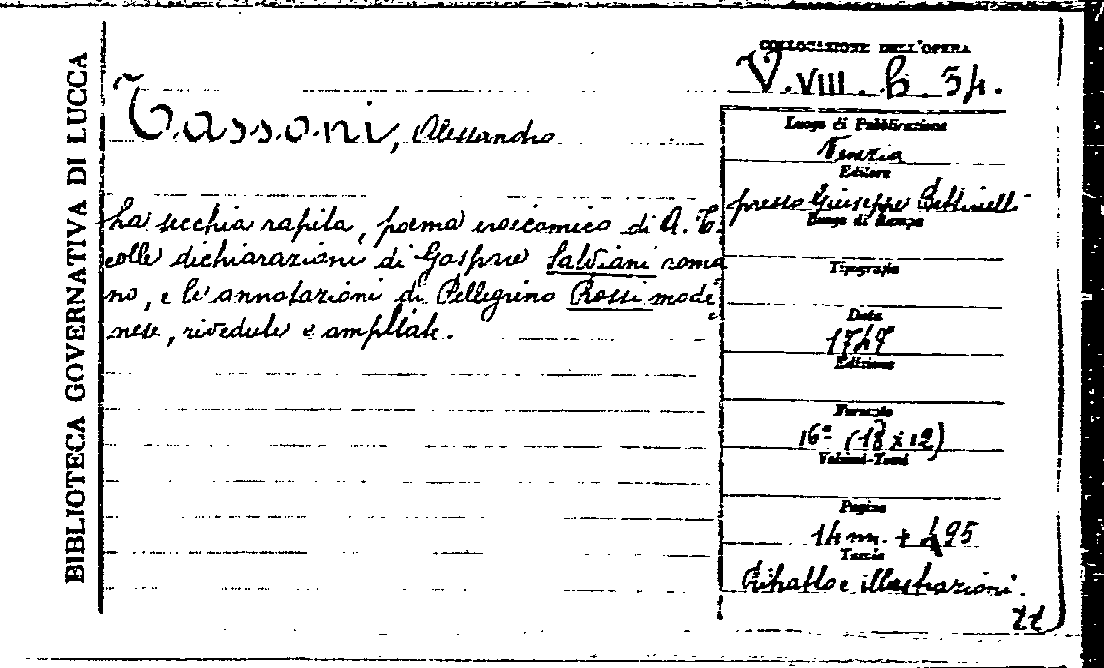 BIBLIOTECA GOVERNATIVA DI LUCCA
COLLOCAZIONE DELL'OPERA
V. VIII. b. 34.
Tassoni, Alessandro
La secchia rapita, poema eroicomico di A. T.
colle dichiarazioni di Gaspare Salviani roma
no, e le annotazioni di Pellegrino Rossi mode
nese, rivedute e ampliate.
Luogo di Pubblicazione
Venezia
Editore
presso Giuseppe Bettinelli
Luogo di Stampa
Tipografia
Data
1747
Edizione
Formato
16º (18 x 12)
Volumi-Tomi
Pagine
14 nn. + 495
Tavole
Ritratto e illustrazioni.